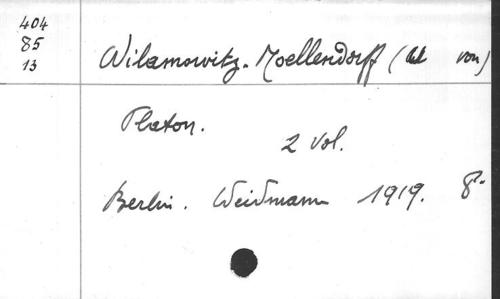 404
85
13
Wilamowitz-Moellendorff (U von)
Platon.
2 Vol.
Berlin. Weidmann 1919. 8°